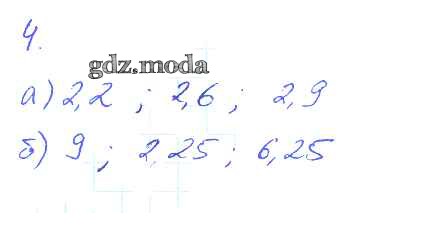 4.
gdz.moda
а) 2,2 ; 2,6 ; 2,9
б) 9 ; 2,25 ; 6,25